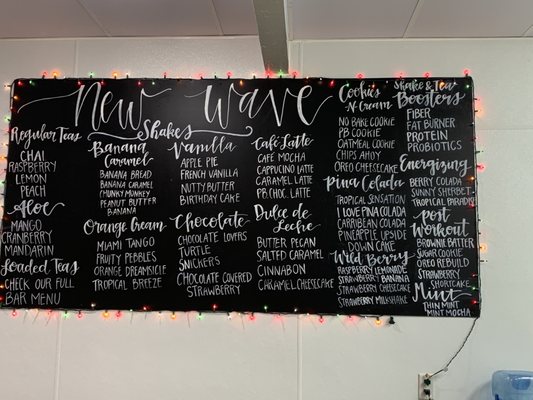 New Wave
Shakes
Regular Teas
CHAI
RASPBERRY
LEMON
PEACH
Aloe
MANGO
CRANBERRY
MANDARIN
Loaded Teas
CHECK OUR FULL
BAR MENU
Banana
Caramel
BANANA BREAD
BANANA CARAMEL
CHUNKY MUNKEY
PEANUT BUTTER
BANANA
Orange Cream
MIAMI TANGO
FRUITY PEBBLES
ORANGE DREAMSICLE
TROPICAL BREEZE
Vanilla
APPLE PIE
FRENCH VANILLA
NUTTY BUTTER
BIRTHDAY CAKE
Chocolate
CHOCOLATE LOVERS
TURTLE
SNICKERS
CHOCOLATE COVERED
STRAWBERRY
Café Latte
CAFÉ MOCHA
CAPPUCINO LATTE
CARAMEL LATTE
P.B. CHOC. LATTE
Dulce de
Leche
BUTTER PECAN
SALTED CARAMEL
CINNABON
CARAMEL CHEESECAKE
Cookies
N Cream
NO BAKE COOKIE
PB COOKIE
OATMEAL COOKIE
CHIPS AHOY
OREO CHEESECAKE
Pina Colada
TROPICAL SENSATION
I LOVE PINA COLADA
CARRIBEAN COLADA
PINEAPPLE UPSIDE
DOWN CAKE
Wild Berry
RASPBERRY LEMONADE
STRAWBERRY BANANA
STRAWBERRY CHEESECAKE
STRAWBERRY MILKSHAKE
Shake & Tea
Boosters
FIBER
FAT BURNER
PROTEIN
PROBIOTICS
Energizing
BERRY COLADA
SUNNY SHERBET
TROPICAL PARADISE
Post
Workout
BROWNIE BATTER
SUGAR COOKIE
OREO REBUILD
STRAWBERRY
SHORTCAKE
Mint
THIN MINT
MINT MOCHA